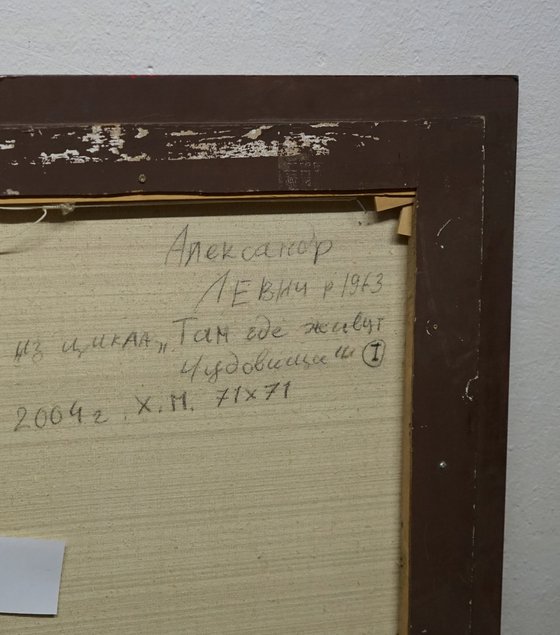 Александр
ЛЕВИЧ р 1963
из цикла „Там где живут
Чудовища“ I
2004 г. Х.М. 71х71